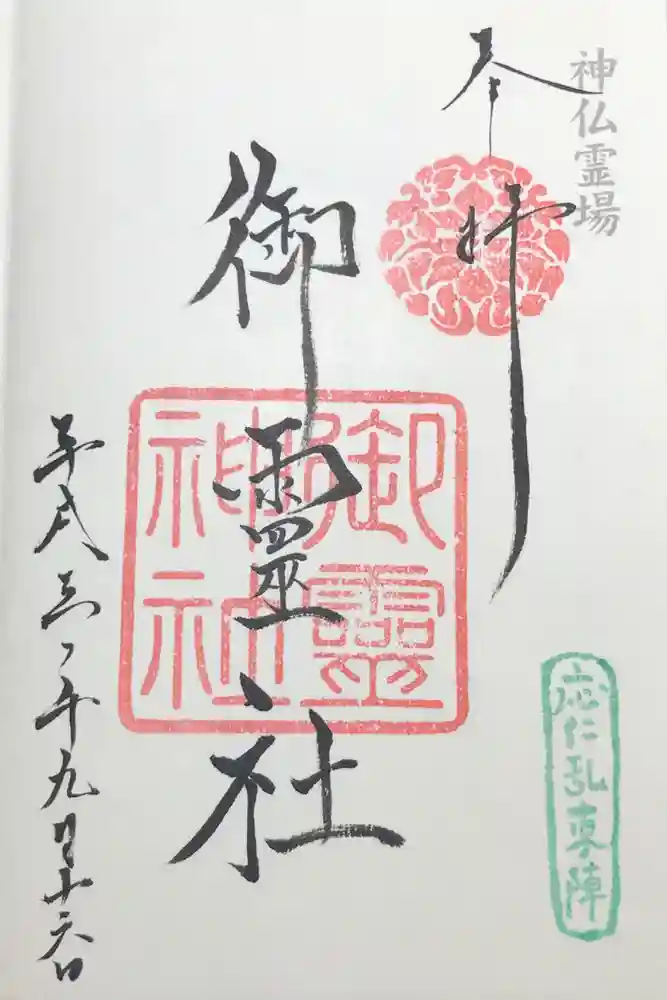 神仏霊場
奉拝
御靈社
御靈神社
応仁乱東陣
平成三〇年九月十六日